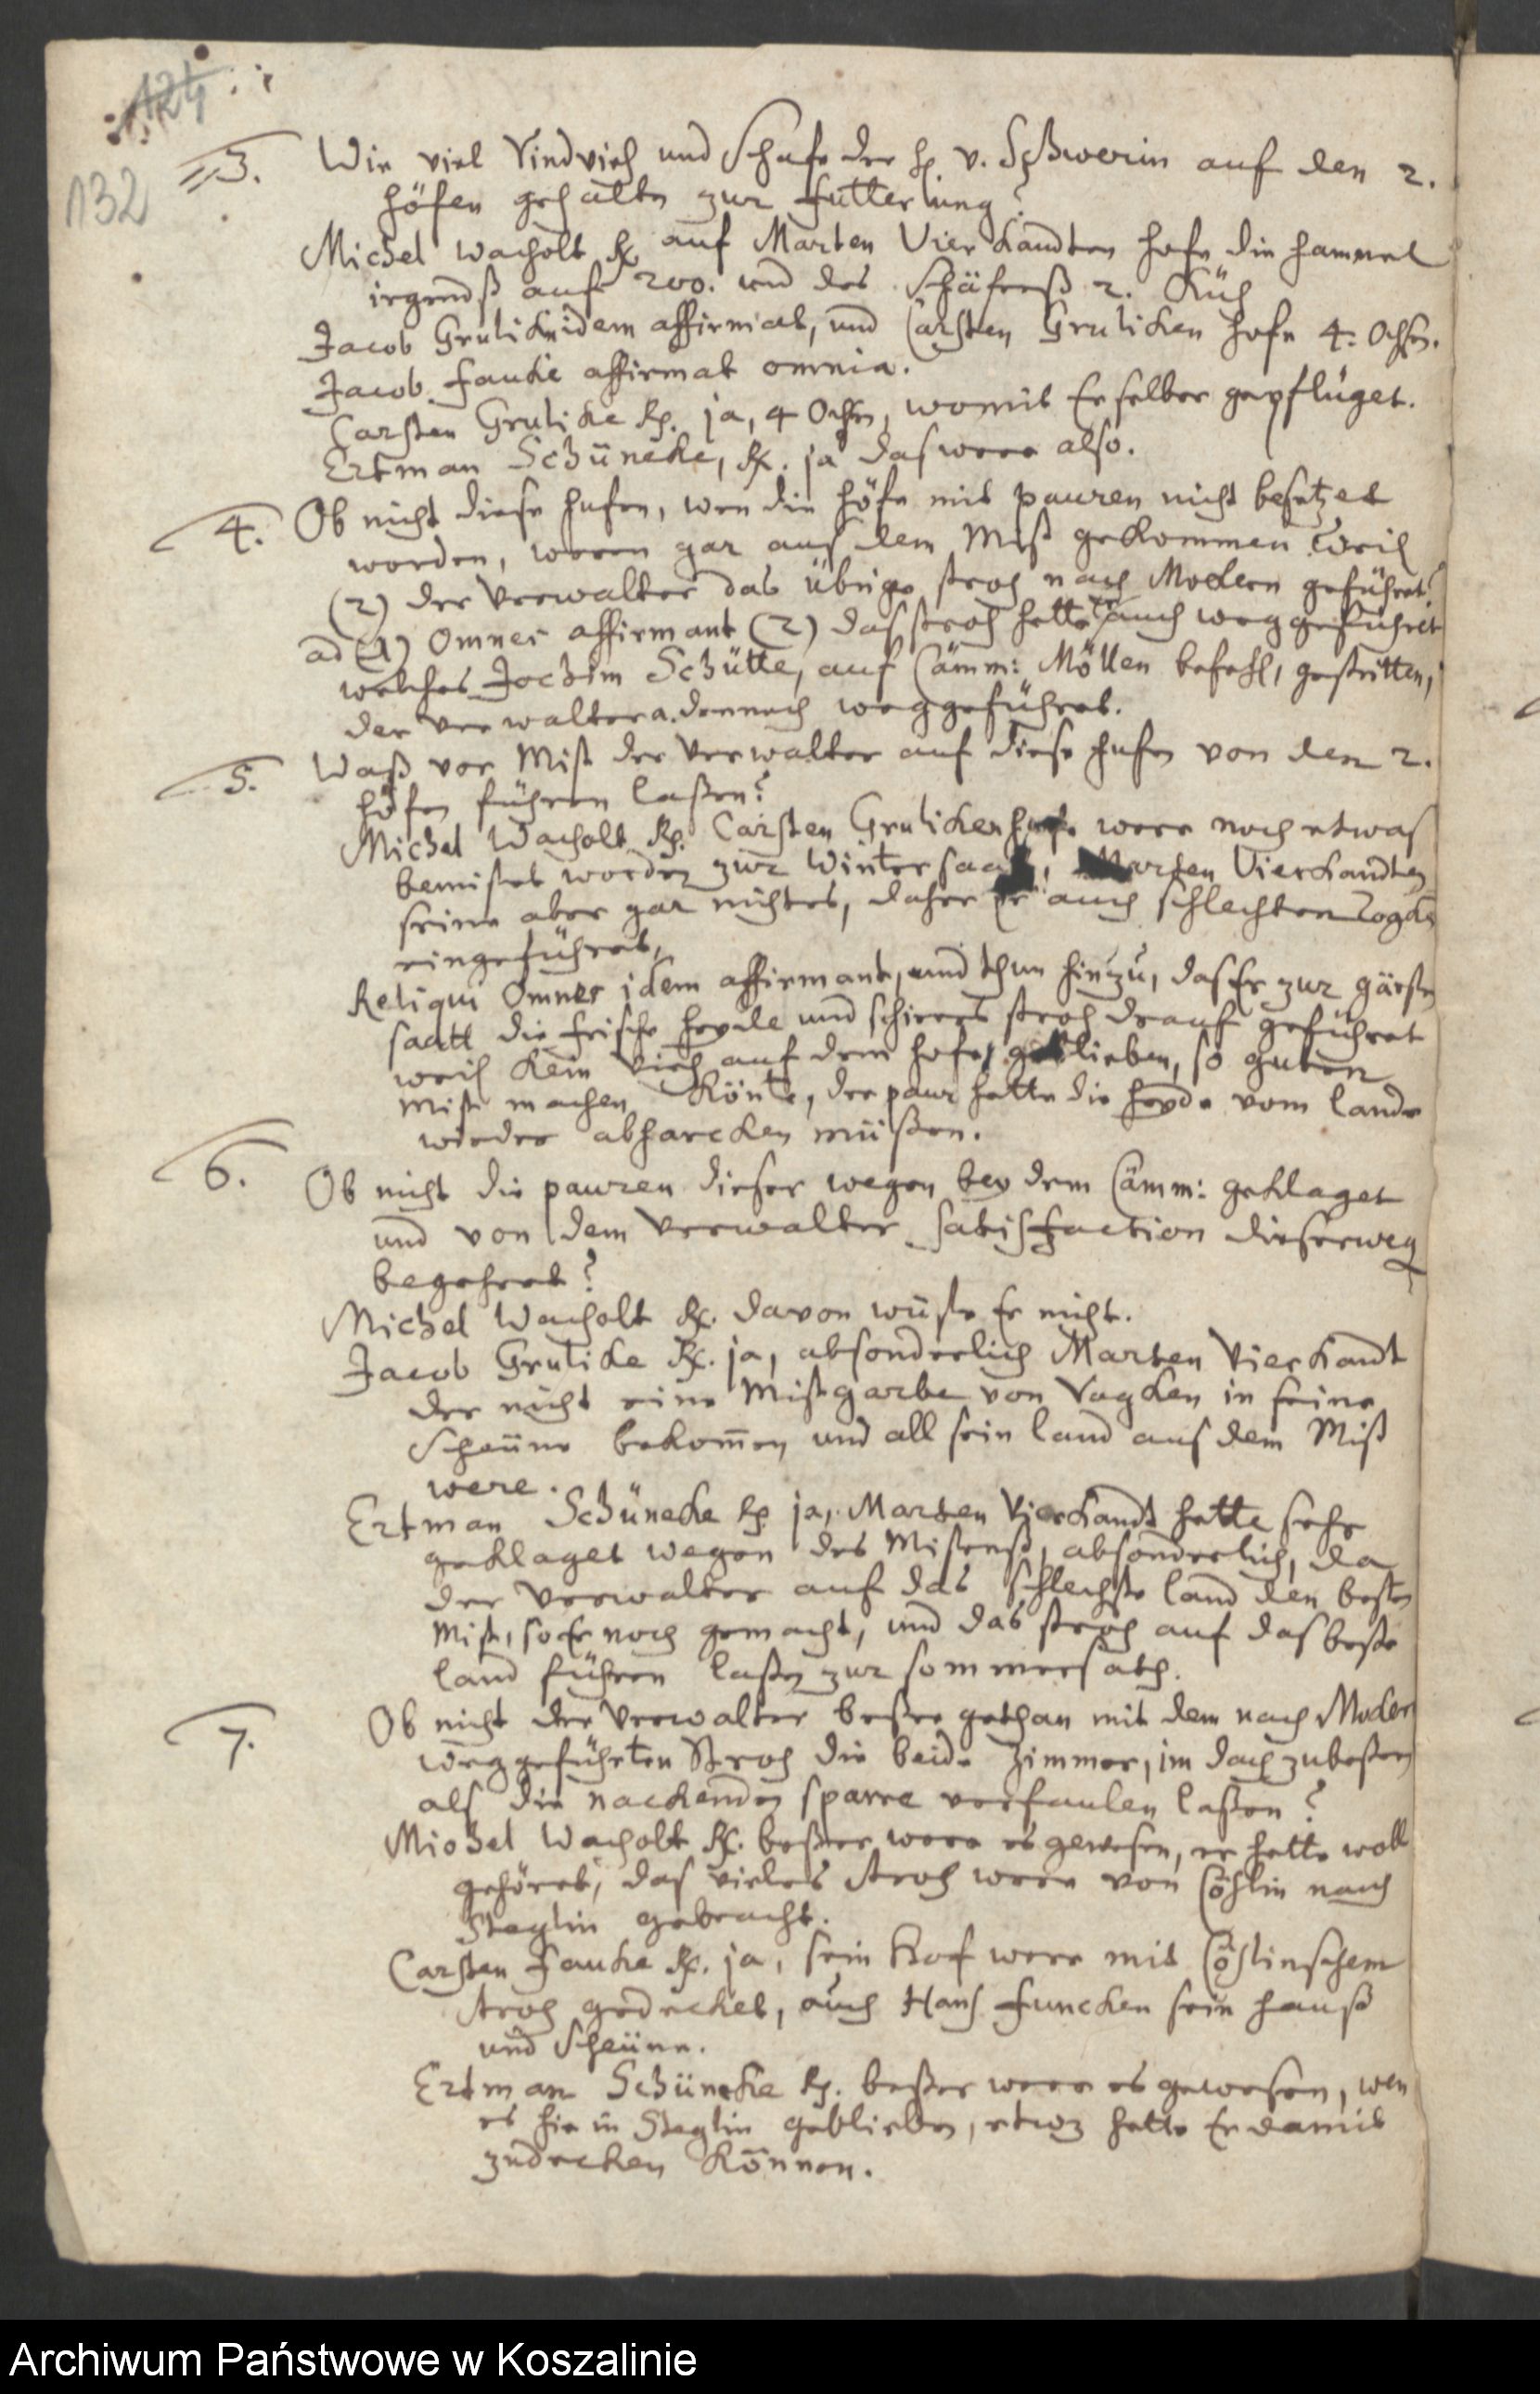 124
132
3. Wie viel Rindvieh und Schafe der H. v. Schwerin auf den 2.
höfen gehalten zur futterung?
Michel Wacholt Rx. auf Marten Vierkandten hofe die hammel
irgendß auf 200. und des Schäferß 2. Küh
Jacob Grulicke idem affirmat, und Carsten Grulicken hofe 4. Ochsen.
Jacob Faucke affirmat omnia.
Carsten Grulicke Rp. ja, 4 Ochsen, womit Er selber gepflüget.
Ertman Schüneke, Rx. ja das were also.
4. Ob nicht diese hufen, wen die höfe mit pauren nicht besetzet
worden, weren gar auß dem Mist gekommen weil
(2) der Verwalter das übrige stroh nach Mockern geführet?
ad (1) Omnes affirmant (2) das stroh hette Er auch weggeführet
welches Jochim Schütte, auf Cämm: Möllen befehl, gestritten,
der Verwalter a. dennoch weggeführet.
5. Waß vor Mist der Verwalter auf diese hufen von den 2.
höfen führen laßen?
Michel Wacholt Rp. Carsten Grulicken hufe were noch etwaß
bemistet worden zur Wintersaat, Marten Vierkandten
seine aber gar nichtes, daher Er auch schlechten Rogken
eingeführet,
Reliqui Omnes idem affirmant, und thun hinzu, das Er zur gärsten
saatt die frische heyde und schieres stroh drauf geführet
weil kein Vieh auf dem hofe geblieben, so guten
Mist machen könte, der paur hette die heyde vom lande
wieder abharcken müßen.
6. Ob nicht die pauren dieser wegen bey dem Cämm: geklaget
und von dem Verwalter satisfaction dieserweg
begehret?
Michel Wacholt Rx. davon wüste Er nicht.
Jacob Grulicke Rx. ja, absonderlich Marten Vierkandt
der nicht eine Mistgarbe von Ragken in seine
Scheüne bekom̄en und all sein land auß dem Mist
were.
Ertman Schüneke Rp. ja, Marten Vierkandt hette sehr
geklaget wegen des Mistenß, absonderlich, da
der Verwalter auf das schlechste land den besten
Mist, so Er noch gemacht, und das stroh auf das beste
land führen laßen zur sommersath.
7. Ob nicht der Verwalter beßer gethan mit dem nach Mocker
weggeführten Stroh die beide Zimmer, im dach zubeßern
als die nackenden sparre verfaulen laßen?
Michel Wacholt Rx. beßer were es gewesen, er hette woll
gehöret, das vieles stroh were von Cößlin nach
Steglin gebracht.
Carsten Faucke Rx. ja, sein Hof were mit Cößlinschem
stroh gedecket, auch Hans Funcken sein hauß
und Scheüne.
Ertman Schüneke Rp. beßer were es gewesen, wen
es hie in Steglin geblieben, etwz hette Er damit
zudecken können.
Archiwum Państwowe w Koszalinie